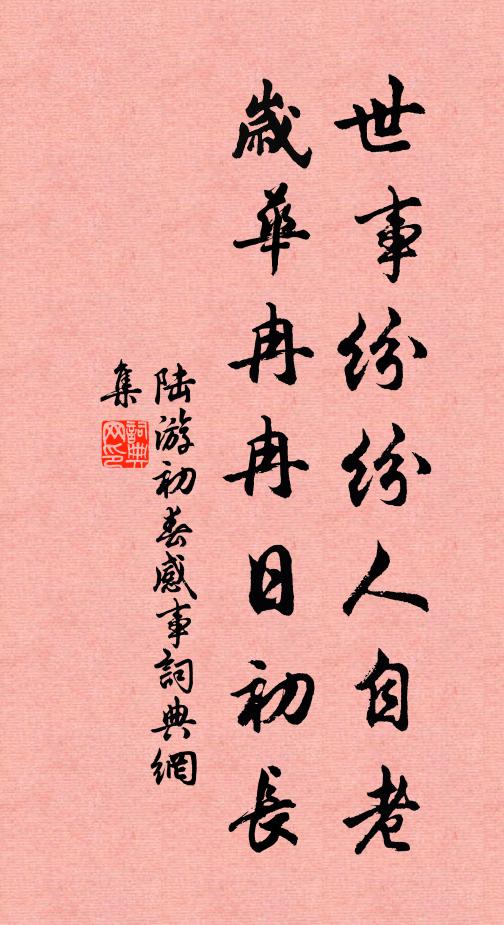 世事紛紛人自老
歲華冉冉日初長
陸游初春感事詞典網
集
詞典
网印